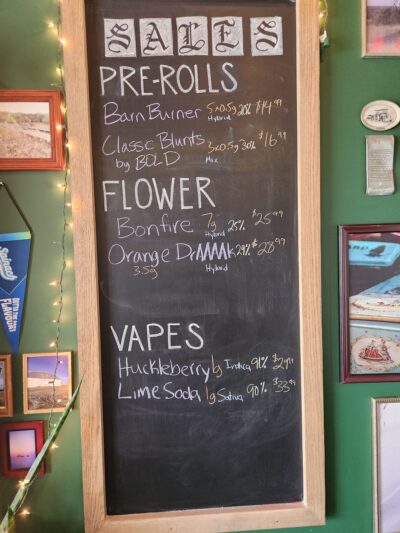 SALES
PRE-ROLLS
Barn Burner 5x0.5g 28% $14.99
Hybrid
Classic Blunts 3x0.5g 30% $16.99
by BOLD Mix
FLOWER
Bonfire 7g 25% $25.99
Hybrid
Orange 29% $28.99
3.5g Hybrid
VAPES
Huckleberry 1g Indica 91% $29.99
Lime Soda 1g Sativa 90% $33.99